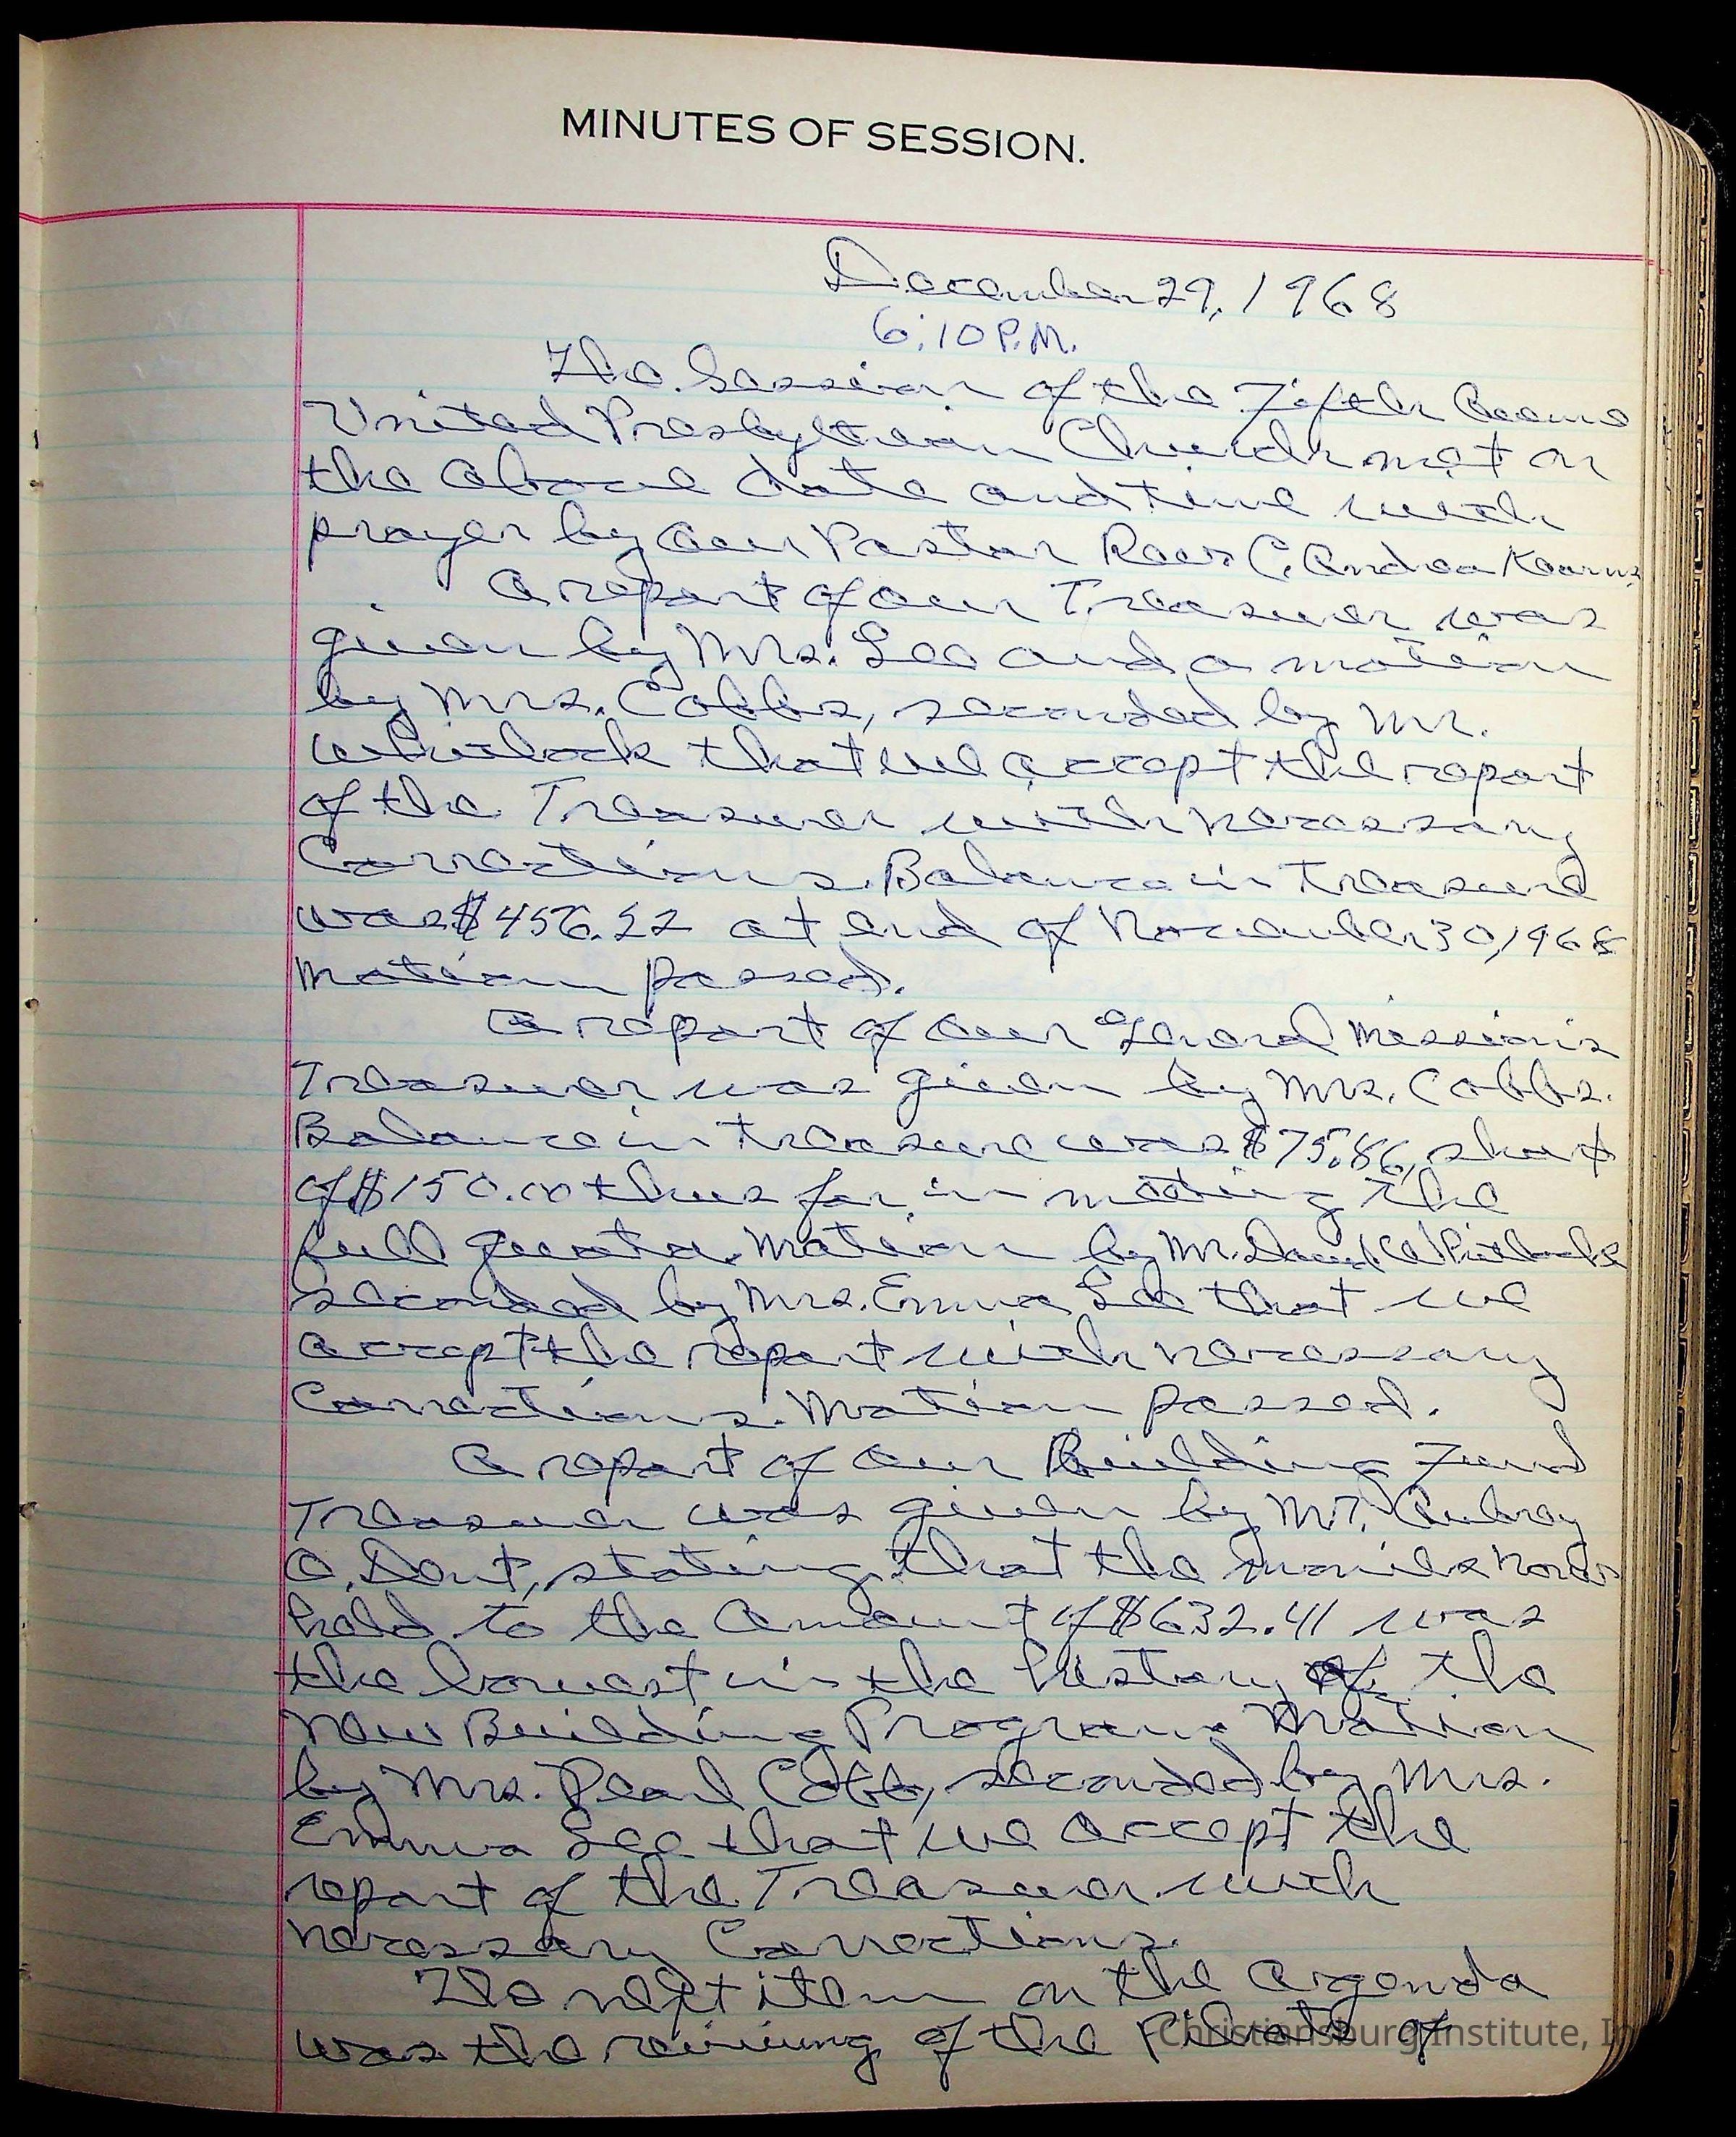 MINUTES OF SESSION.
December 29, 1968
6:10 P.M.
The Session of the Fifth Avenue
United Presbyterian Church met on
the above date and time with
prayer by our Pastor Rev. C. Andrea Kearns
A report of our Treasurer was
given by Mrs. Lee and a motion
by Mrs. Cobbs, seconded by Mr.
Whitlock that we accept the report
of the Treasurer with necessary
Corrections. Balance in Treasure
was $456.22 at end of November 30, 1968
Motion passed.
A report of our General Missions
Treasurer was given by Mrs. Cobbs.
Balance in treasure was $75.86, short
of $150.00 thus far in meeting the
full quota. Motion by Mr. David Whitlock
seconded by Mrs. Emma Lee that we
accept the report with necessary
Corrections. Motion passed.
A report of our Building Fund
Treasurer was given by Mr. Aubrey
O. Dent, stating that the monies now
held to the amount of $632.41 was
the lowest in the history of the
New Building Program. Motion
by Mrs. Pearl Cobb, seconded by Mrs.
Emma Lee that we accept the
report of the Treasurer with
necessary Corrections.
The next item on the agenda
was the reviewing of the of
Christiansburg Institute, In